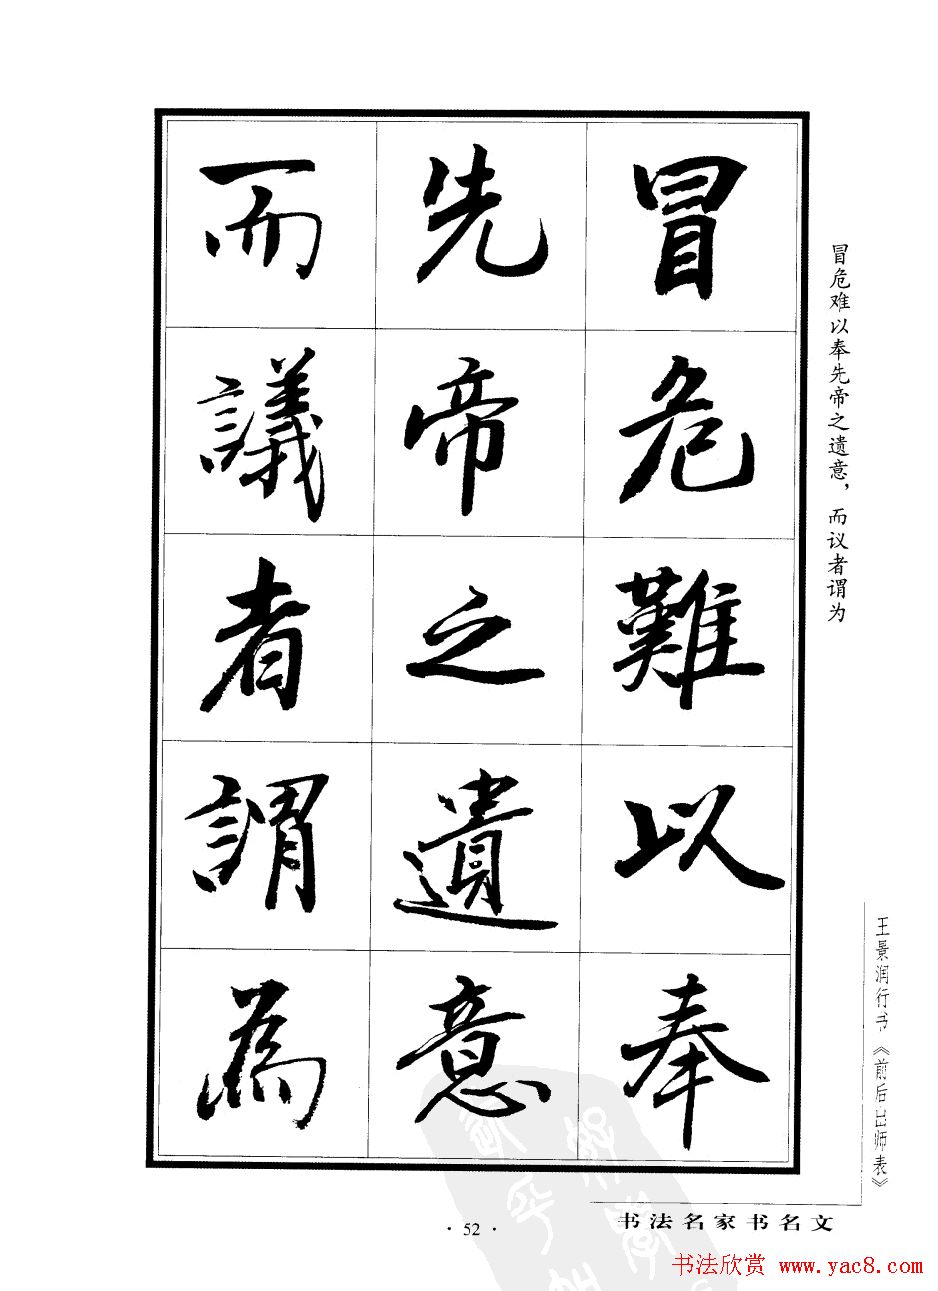 冒危難以奉
先帝之遺意
而議者謂為
冒危难以奉先帝之遗意，而议者谓为
王景润行书《前后出师表》
书法名家书名文
· 52 ·
书法欣赏 www.yac8.com